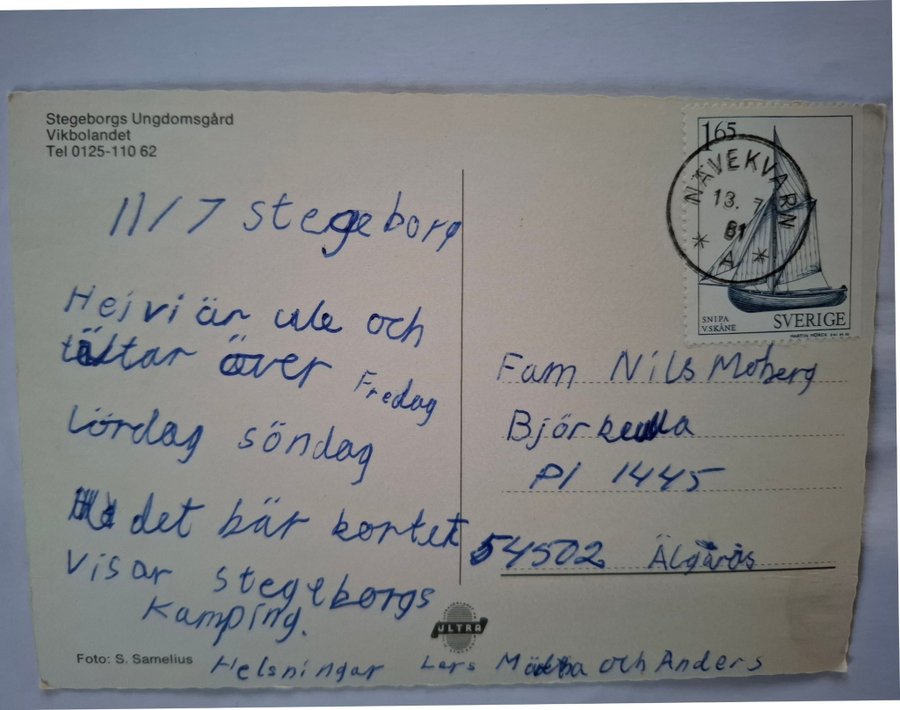 Stegeborgs Ungdomsgård
Vikbolandet
Tel 0125-110 62
11/7 stegeborg
Hej vi är ute och
tältar över Fredag
Lördag söndag
det här kortet
visar stegeborgs
Kamping.
Foto: S. Samelius
Helsningar Lars och Anders
ULTRA
1.65
NÄVEKVARN
13. 7
81
* A *
SNIPA
V.SKÅNE
SVERIGE
Fam Nils Moberg
Björkulla
Pl 1445
54502 Älgarås